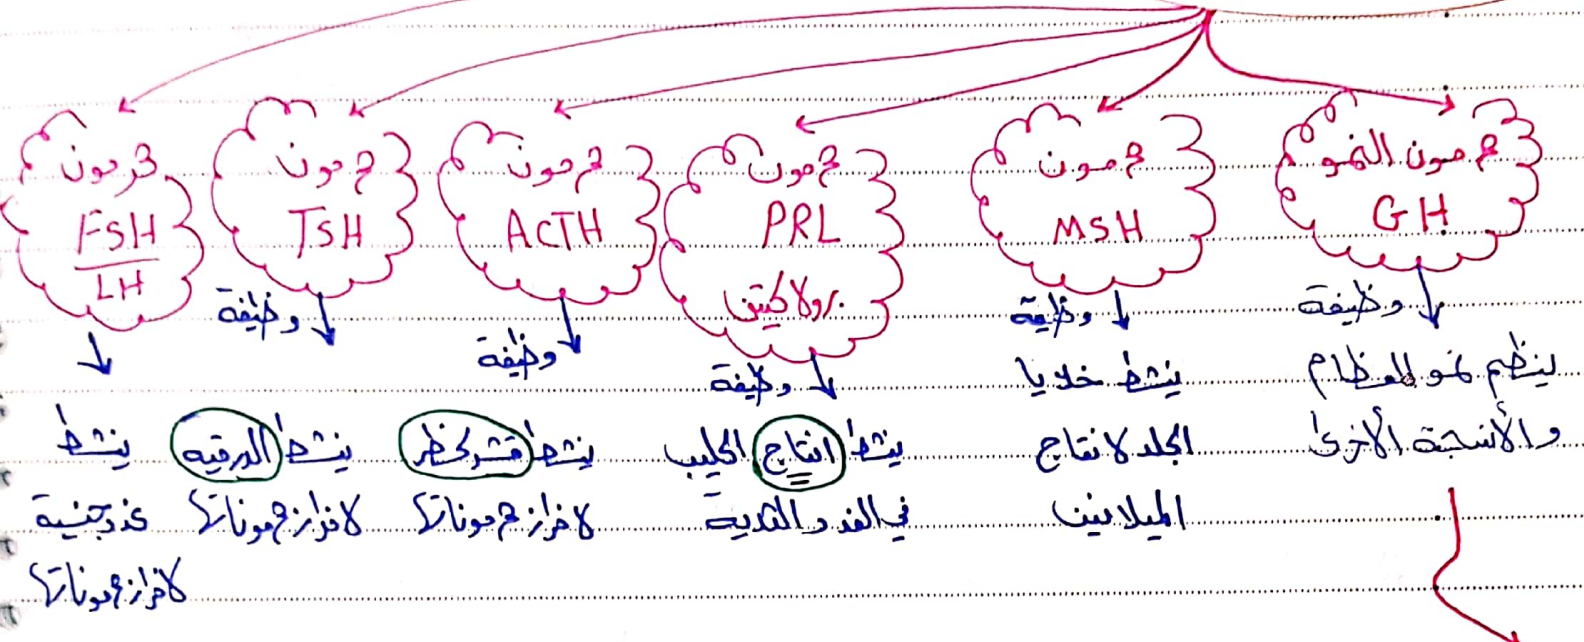 هرمون النمو
GH
وظيفة
ينظم نمو العظام
والأنسجة الأخرى
هرمون
MSH
وظيفة
ينشط خلايا
الجلد لانتاج
الميلانين
هرمون
PRL
برولاكتين
وظيفة
ينشط انتاج الحليب
في الغدد الثديية
هرمون
ACTH
وظيفة
ينشط قشرة كظر
لافراز هرموناتها
هرمون
TSH
وظيفة
ينشط الدرقيه
لافراز هرموناتها
هرمون
FSH
LH
ينشط
غدد جنسية
لافراز هرموناتها